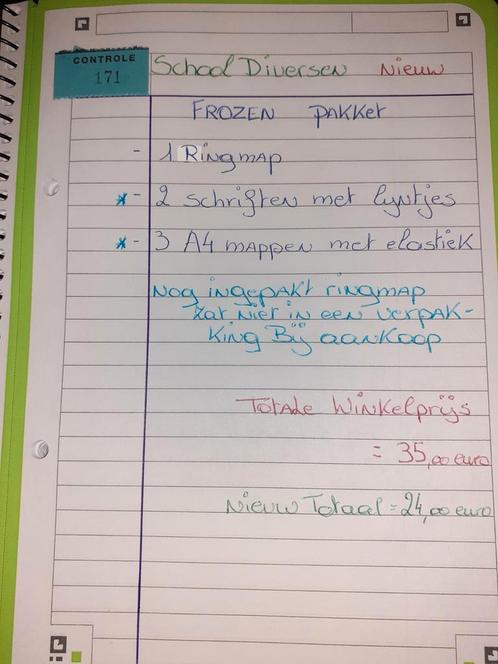 CONTROLE
171
School Diversen Nieuw
FROZEN pakket
- 1 Ringmap
* - 2 schriften met lyntjes
* - 3 A4 mappen met elastiek
Nog ingepakt ringmap
zat niet in een verpak-
king Bij aankoop
Totale Winkelprijs
= 35,00 euro
Nieuw Totaal = 24,00 euro